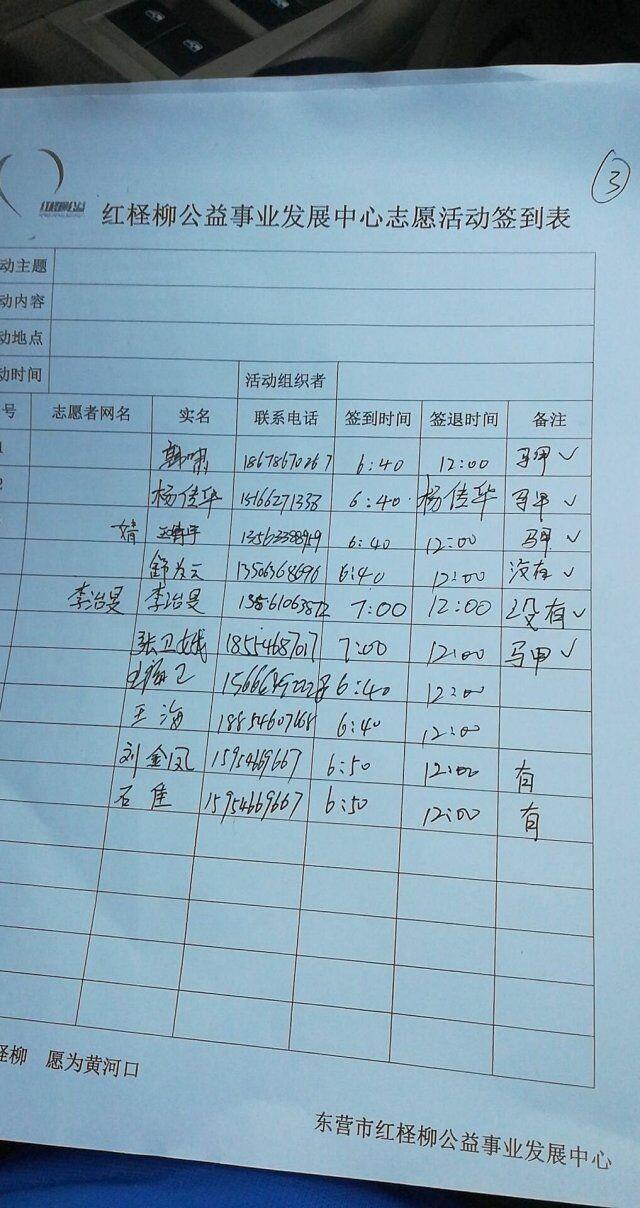 ③
红柽柳公益
红柽柳公益事业发展中心志愿活动签到表
动主题
动内容
动地点
动时间 活动组织者
号 志愿者网名 实名 联系电话 签到时间 签退时间 备注
1 韩啸 18678670267 6:40 12:00 马甲 ✓
2 杨佳华 15166271338 6:40 杨佳华 马甲 ✓
婧 6:40 12:00 马甲 ✓
6:40 12:00 没有 ✓
李治旻 李治旻 7:00 12:00 没有 ✓
张卫娥 18554687017 7:00 12:00 马甲 ✓
6:40 12:00
王海 18854607168 6:40 12:00
刘金凤 15954669667 6:50 12:00 有
石佳 15954669667 6:50 12:00 有
柽柳 愿为黄河口
东营市红柽柳公益事业发展中心